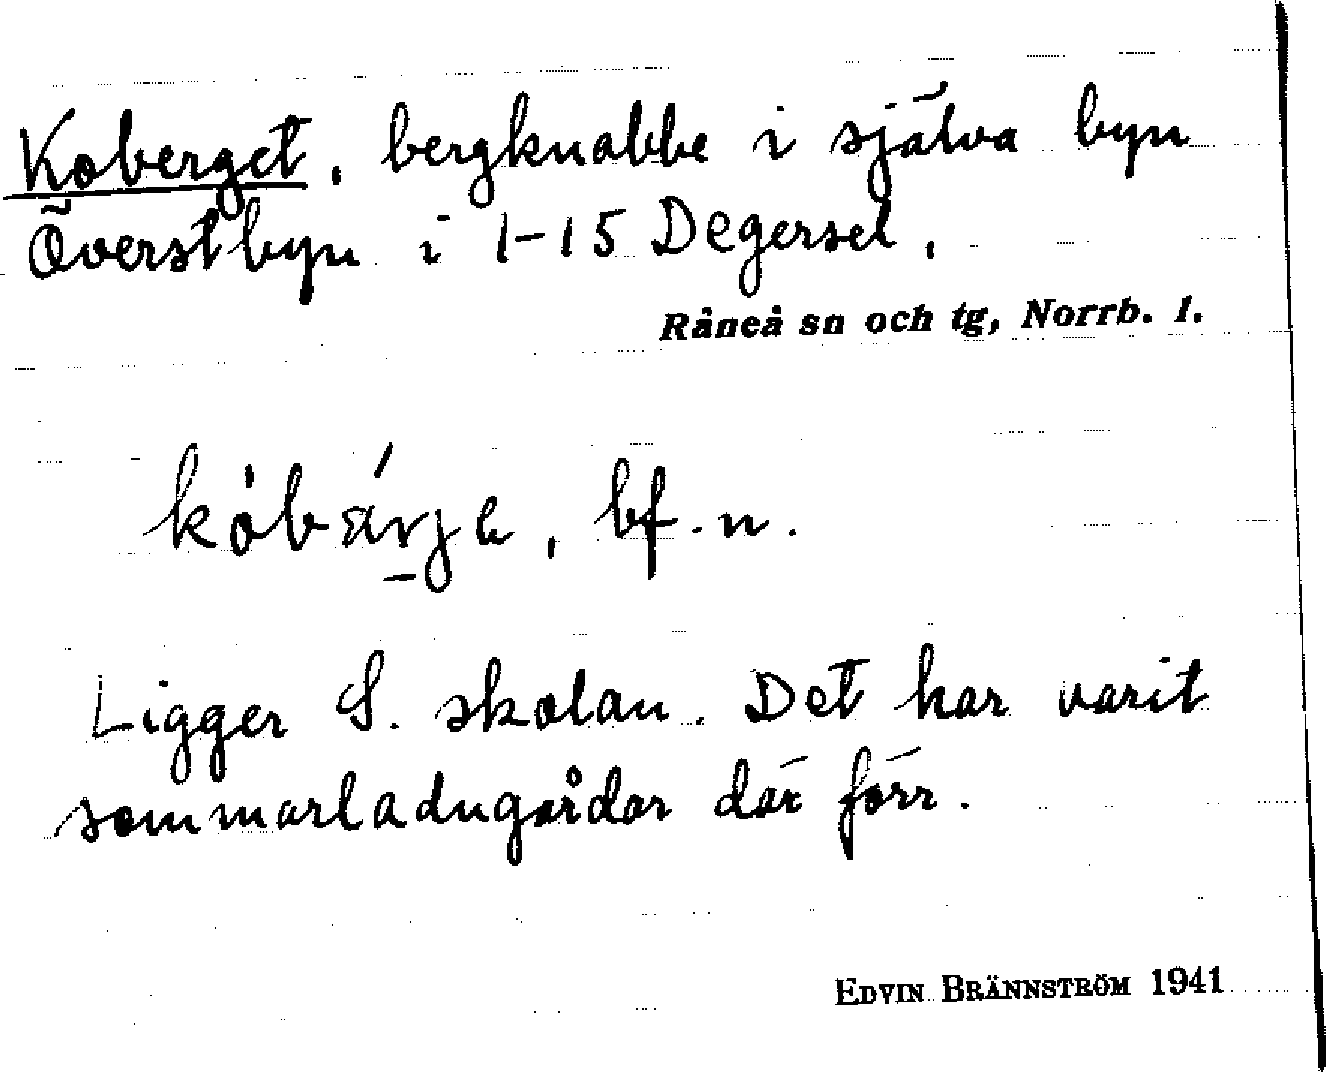 Koberget, bergknabbe i själva byn
Överstbyn i 1-15 Degersel.
Råneå sn och tg, Norrb. l.
kòbárje, bf. n.
Ligger S. skolan. Det har varit
sommarladugårdar där förr.
EDVIN BRÄNNSTRÖM 1941